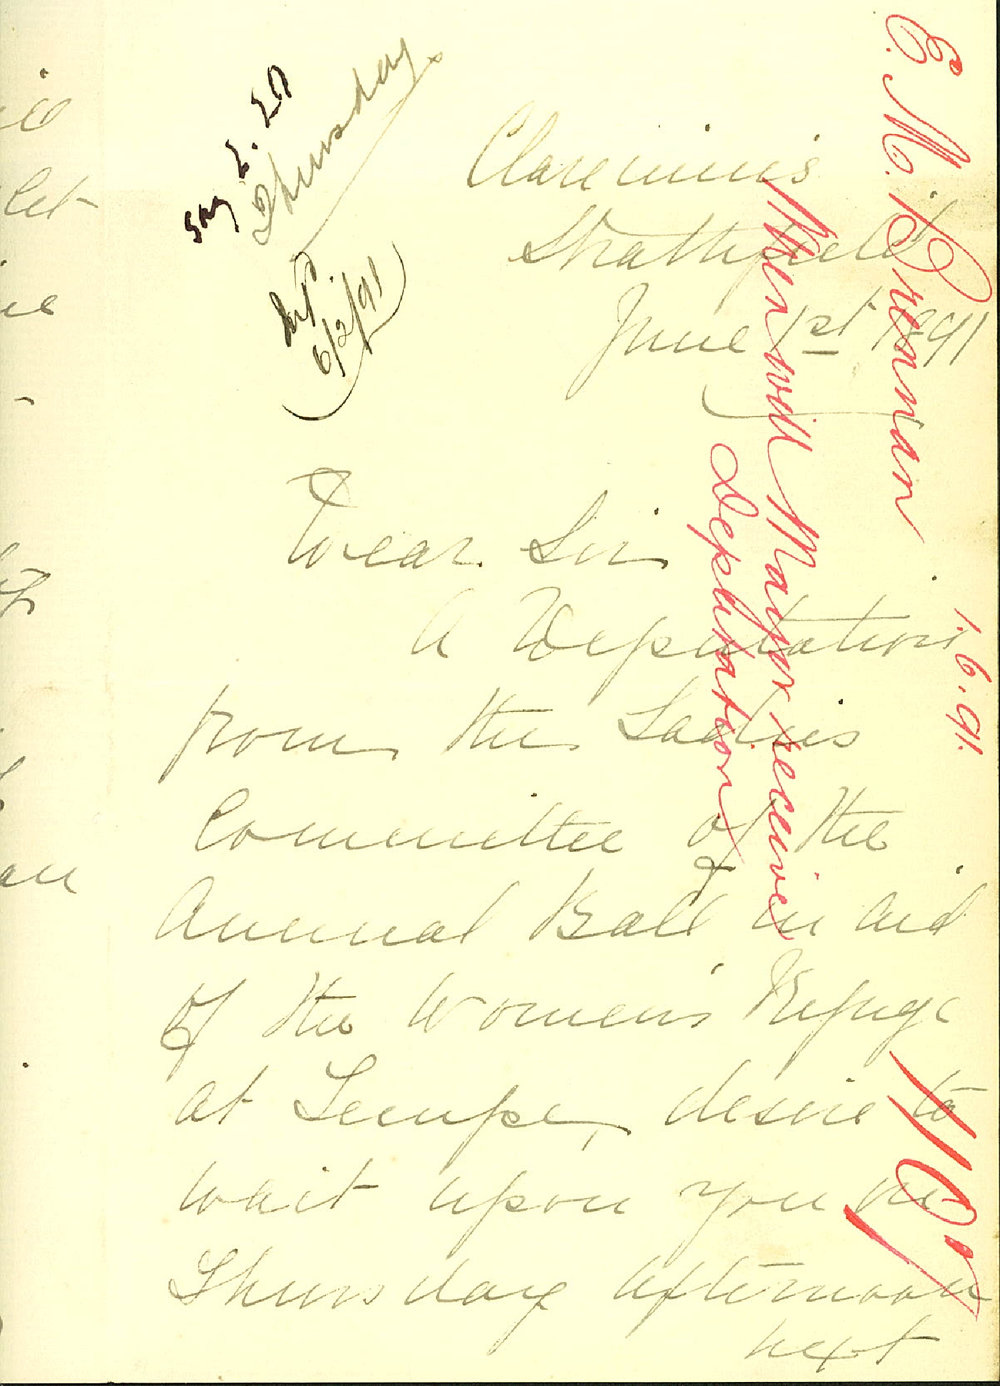 E. M. Brennan
1.6.91.
When will Mayor receive
deputation
1107
Say 2.30
Thursday
6/2/91
Strathfield
June 1st 1891
Dear Sir
A Deputation
from the Ladies
Committee of the
Annual Ball in aid
of the Women's Refuge
at Tempe, desire to
wait upon you on
Thursday afternoon
next